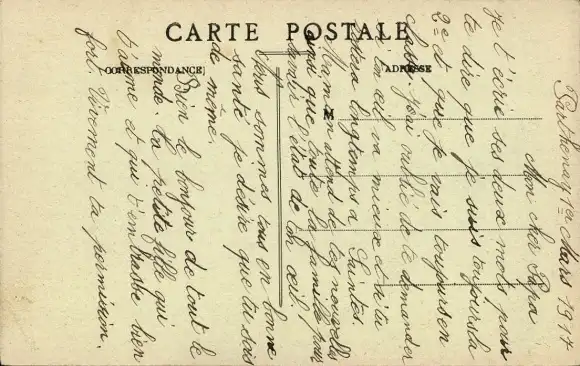 CARTE POSTALE
CORRESPONDANCE
ADRESSE
M
Parthenay 1er Mars 1917
Mon cher Papa
Je t'écrie ses deux mots pour
te dire que je suis toujours la
2e et que je vais toujours en
classe. J'ai oublié de te demander
si ton œil va mieux et si tu
resteras longtemps a Saintes.
Maman attend de tes nouvelles
ainsi que toute la famille pour
savoir l'état de ton œil.
Nous sommes tous en bonne
santé je désire que tu sois
de même.
Bien le bonjour de tout le
monde. Ta petite fille qui
t'aime et qui t'embrasse bien
fort. Vivement ta permission.